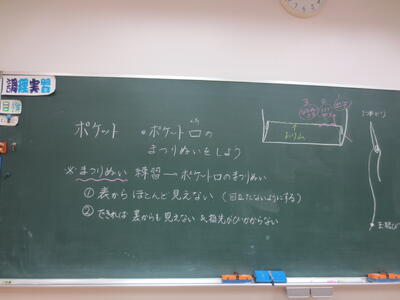 調理実習
目標
ポケット ・ポケット口の
まつりぬいをしよう
※まつりぬい 練習→ポケット口のまつりぬい
①表からほとんど見えない(目立たないようにする)
②できれば裏からも見えない & 指先がひっかからない
おり山
玉結び